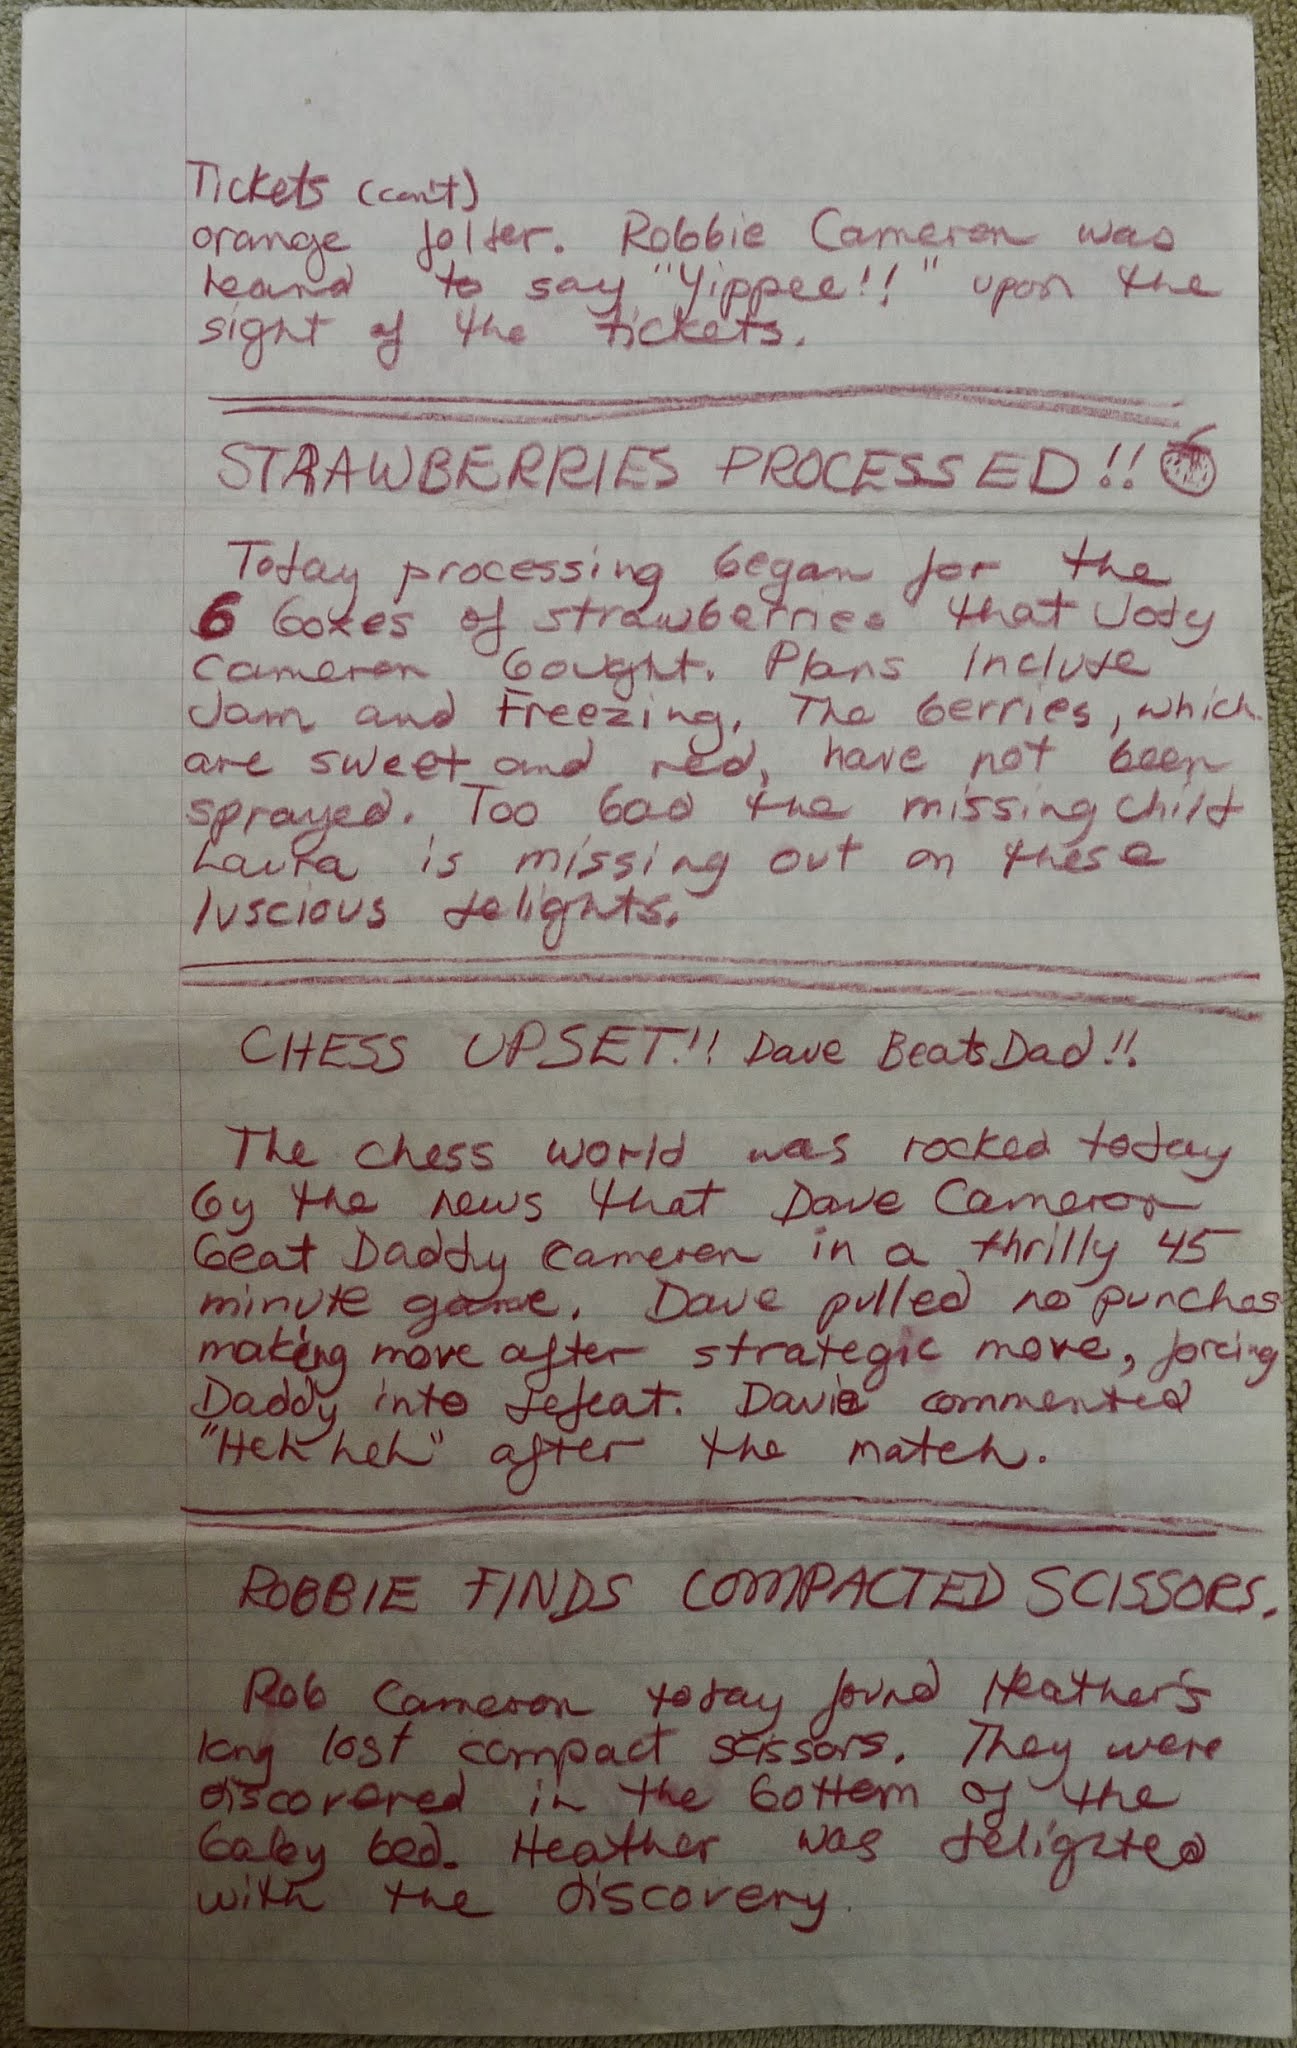 Tickets (con't)
orange folder. Robbie Cameron was
heard to say "Yippee!!" upon the
sight of the tickets.
STRAWBERRIES PROCESSED!!
Today processing began for the
6 boxes of strawberries that Jody
Cameron bought. Plans include
Jam and Freezing. The berries, which
are sweet and red, have not been
sprayed. Too bad the missing child
Laura is missing out on these
luscious delights.
CHESS UPSET!! Dave Beats Dad!!
The chess world was rocked today
by the news that Dave Cameron
beat Daddy Cameron in a thrilly 45
minute game. Dave pulled no punches
making move after strategic move, forcing
Daddy into defeat. Davie commented
"Heh heh" after the match.
ROBBIE FINDS COMPACTED SCISSORS.
Rob Cameron today found Heather's
long lost compact scissors. They were
discovered in the bottom of the
baby bed. Heather was delighted
with the discovery.